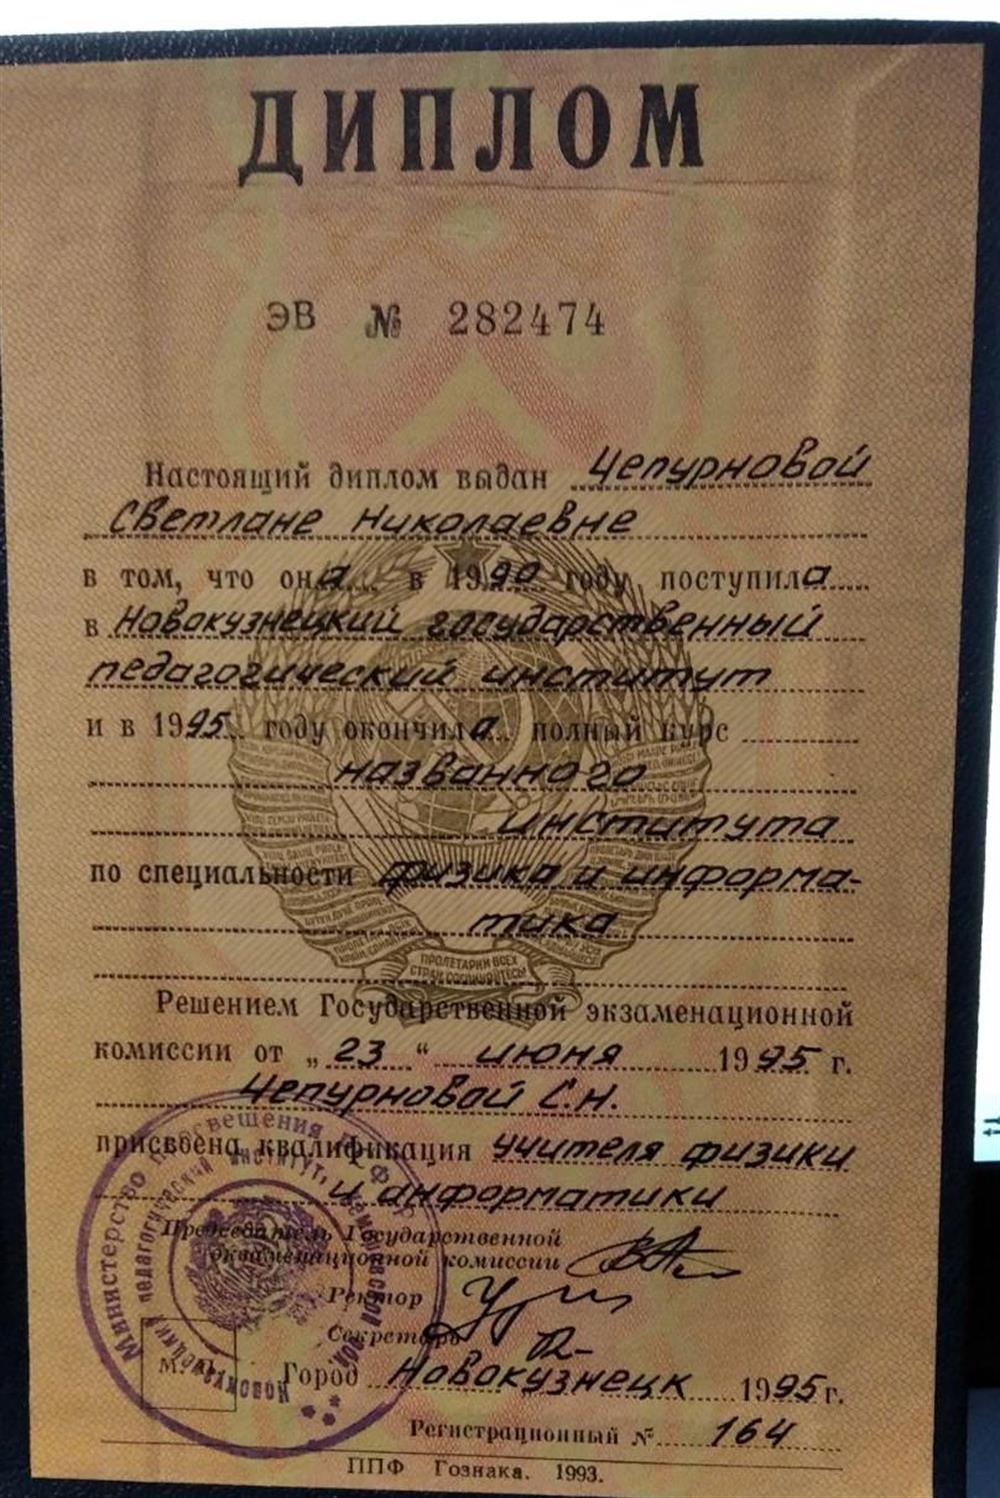 ДИПЛОМ
ЭВ № 282474
Настоящий диплом выдан Чепурновой
Светлане Николаевне
в том, что она в 1990 году поступила
в Новокузнецкий государственный
педагогический институт
и в 1995 году окончила полный курс
названного
института
по специальности физика и информа-
тика
ПРОЛЕТАРИИ ВСЕХ
СТРАН, СОЕДИНЯЙТЕСЬ!
Решением Государственной экзаменационной
комиссии от „23“ июня 1995 г.
Чепурновой С.Н.
присвоена квалификация учителя физики
и информатики
Председатель Государственной
экзаменационной комиссии
Ректор
Секретарь
М. П.
Город Новокузнецк 1995 г.
Регистрационный № 164
ППФ Гознака. 1993.
Министерство просвещения РСФСР
педагогический институт, Кемеровской обл.